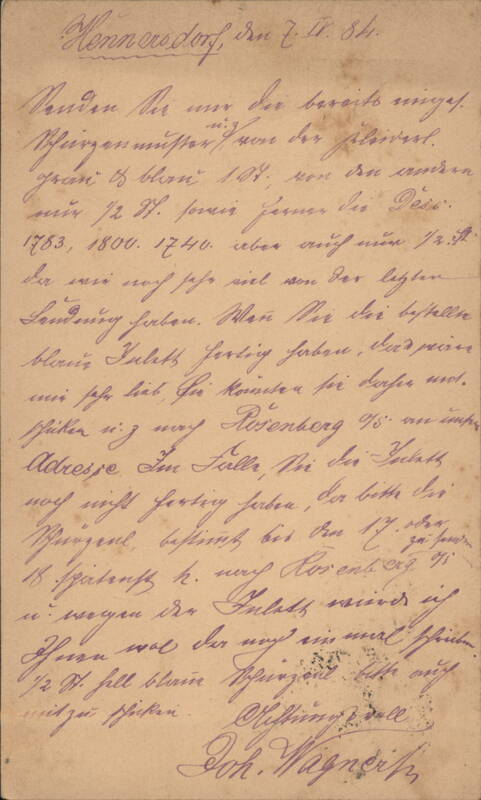 Hennersdorf, den 7. IV. 84.
Senden Sie mir die bereits einges.
Schürzenmuster u. z. von der
grau & blau 1 St., von den andern
nur 1/2 St. sowie ferner die Dess.
1783, 1800. 1740. aber auch nur 1/2 St.
da wir noch sehr viel von der letzten
Sendung haben. Wen Sie die bestellte
blaue Inlett fertig haben, das wäre
mir sehr lieb, Sie könnten sie daher mit-
schicken u. z nach Rosenberg o/s an unsere
Adresse. Im Falle, Sie die Inlett
noch nicht fertig haben, da bitte die
Schürzenl. bestimt bis den 17. oder
18. spätenst h. nach Rosenberg o/s zu senden
u. wegen der Inlett würde ich
Ihnen wol da noch ein mal schreiben.
1/2 St. hell blaue Schürzenl. bitte auch
mitzu schicken. Achtungsvoll
Joh. Wagner